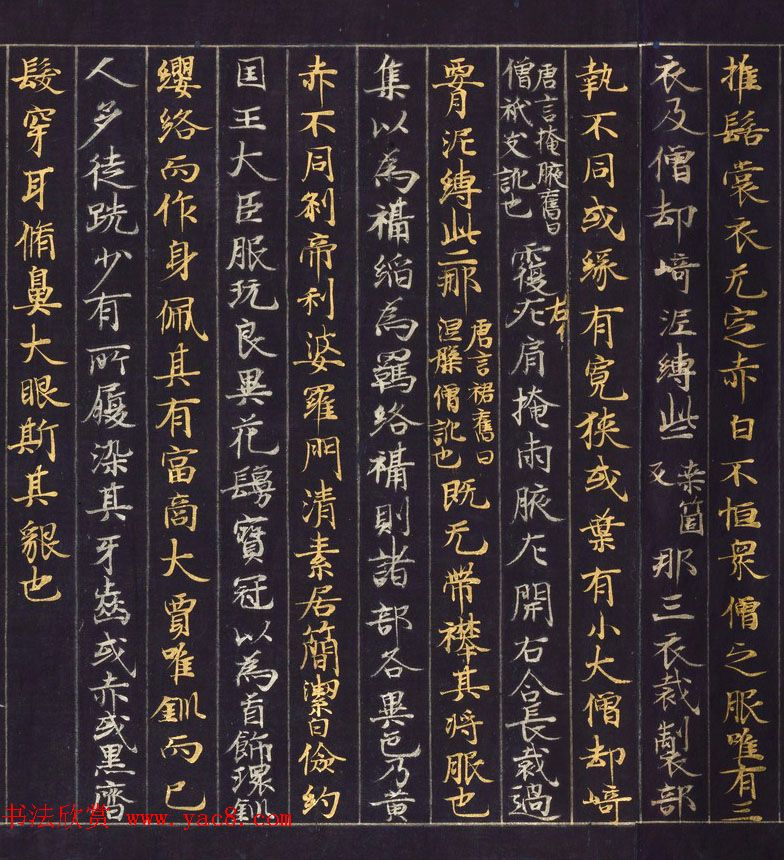 推髻裳衣无定赤白不恒衆僧之服唯有三
衣及僧却崎泥縛些桒箇反那三衣裁製部
執不同或緣有寛狹或葉有小大僧却崎
唐言掩腋舊曰僧祇支訛也覆左右肩掩両腋左開右合長裁過
腰泥縛些那唐言裙舊曰涅槃僧訛也既无帶襻其将服也
集以為襵縚為羈絡襵則諸部各異色乃黄
赤不同刹帝利婆羅門清素居簡潔白儉約
国王大臣服玩良異花鬘寶冠以為首飾環釧
纓絡而作身佩其有富商大賈唯釧而已
人多徒跣少有所履染其牙齒或赤或黒齊
髮穿耳脩鼻大眼斯其貌也
书法欣赏 www.yac8.com